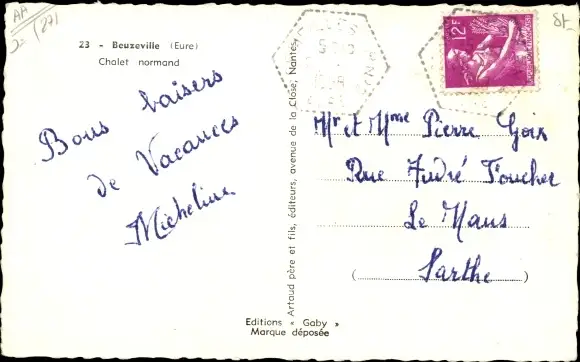 23 - Beuzeville (Eure)
Chalet normand
Bons baisers
de Vacances
Micheline
Artaud père et fils, éditeurs, avenue de la Close, Nantes
Editions « Gaby »
Marque déposée
12F
Mr et Mme Pierre Goix
Rue André Foucher
Le Mans
(Sarthe)